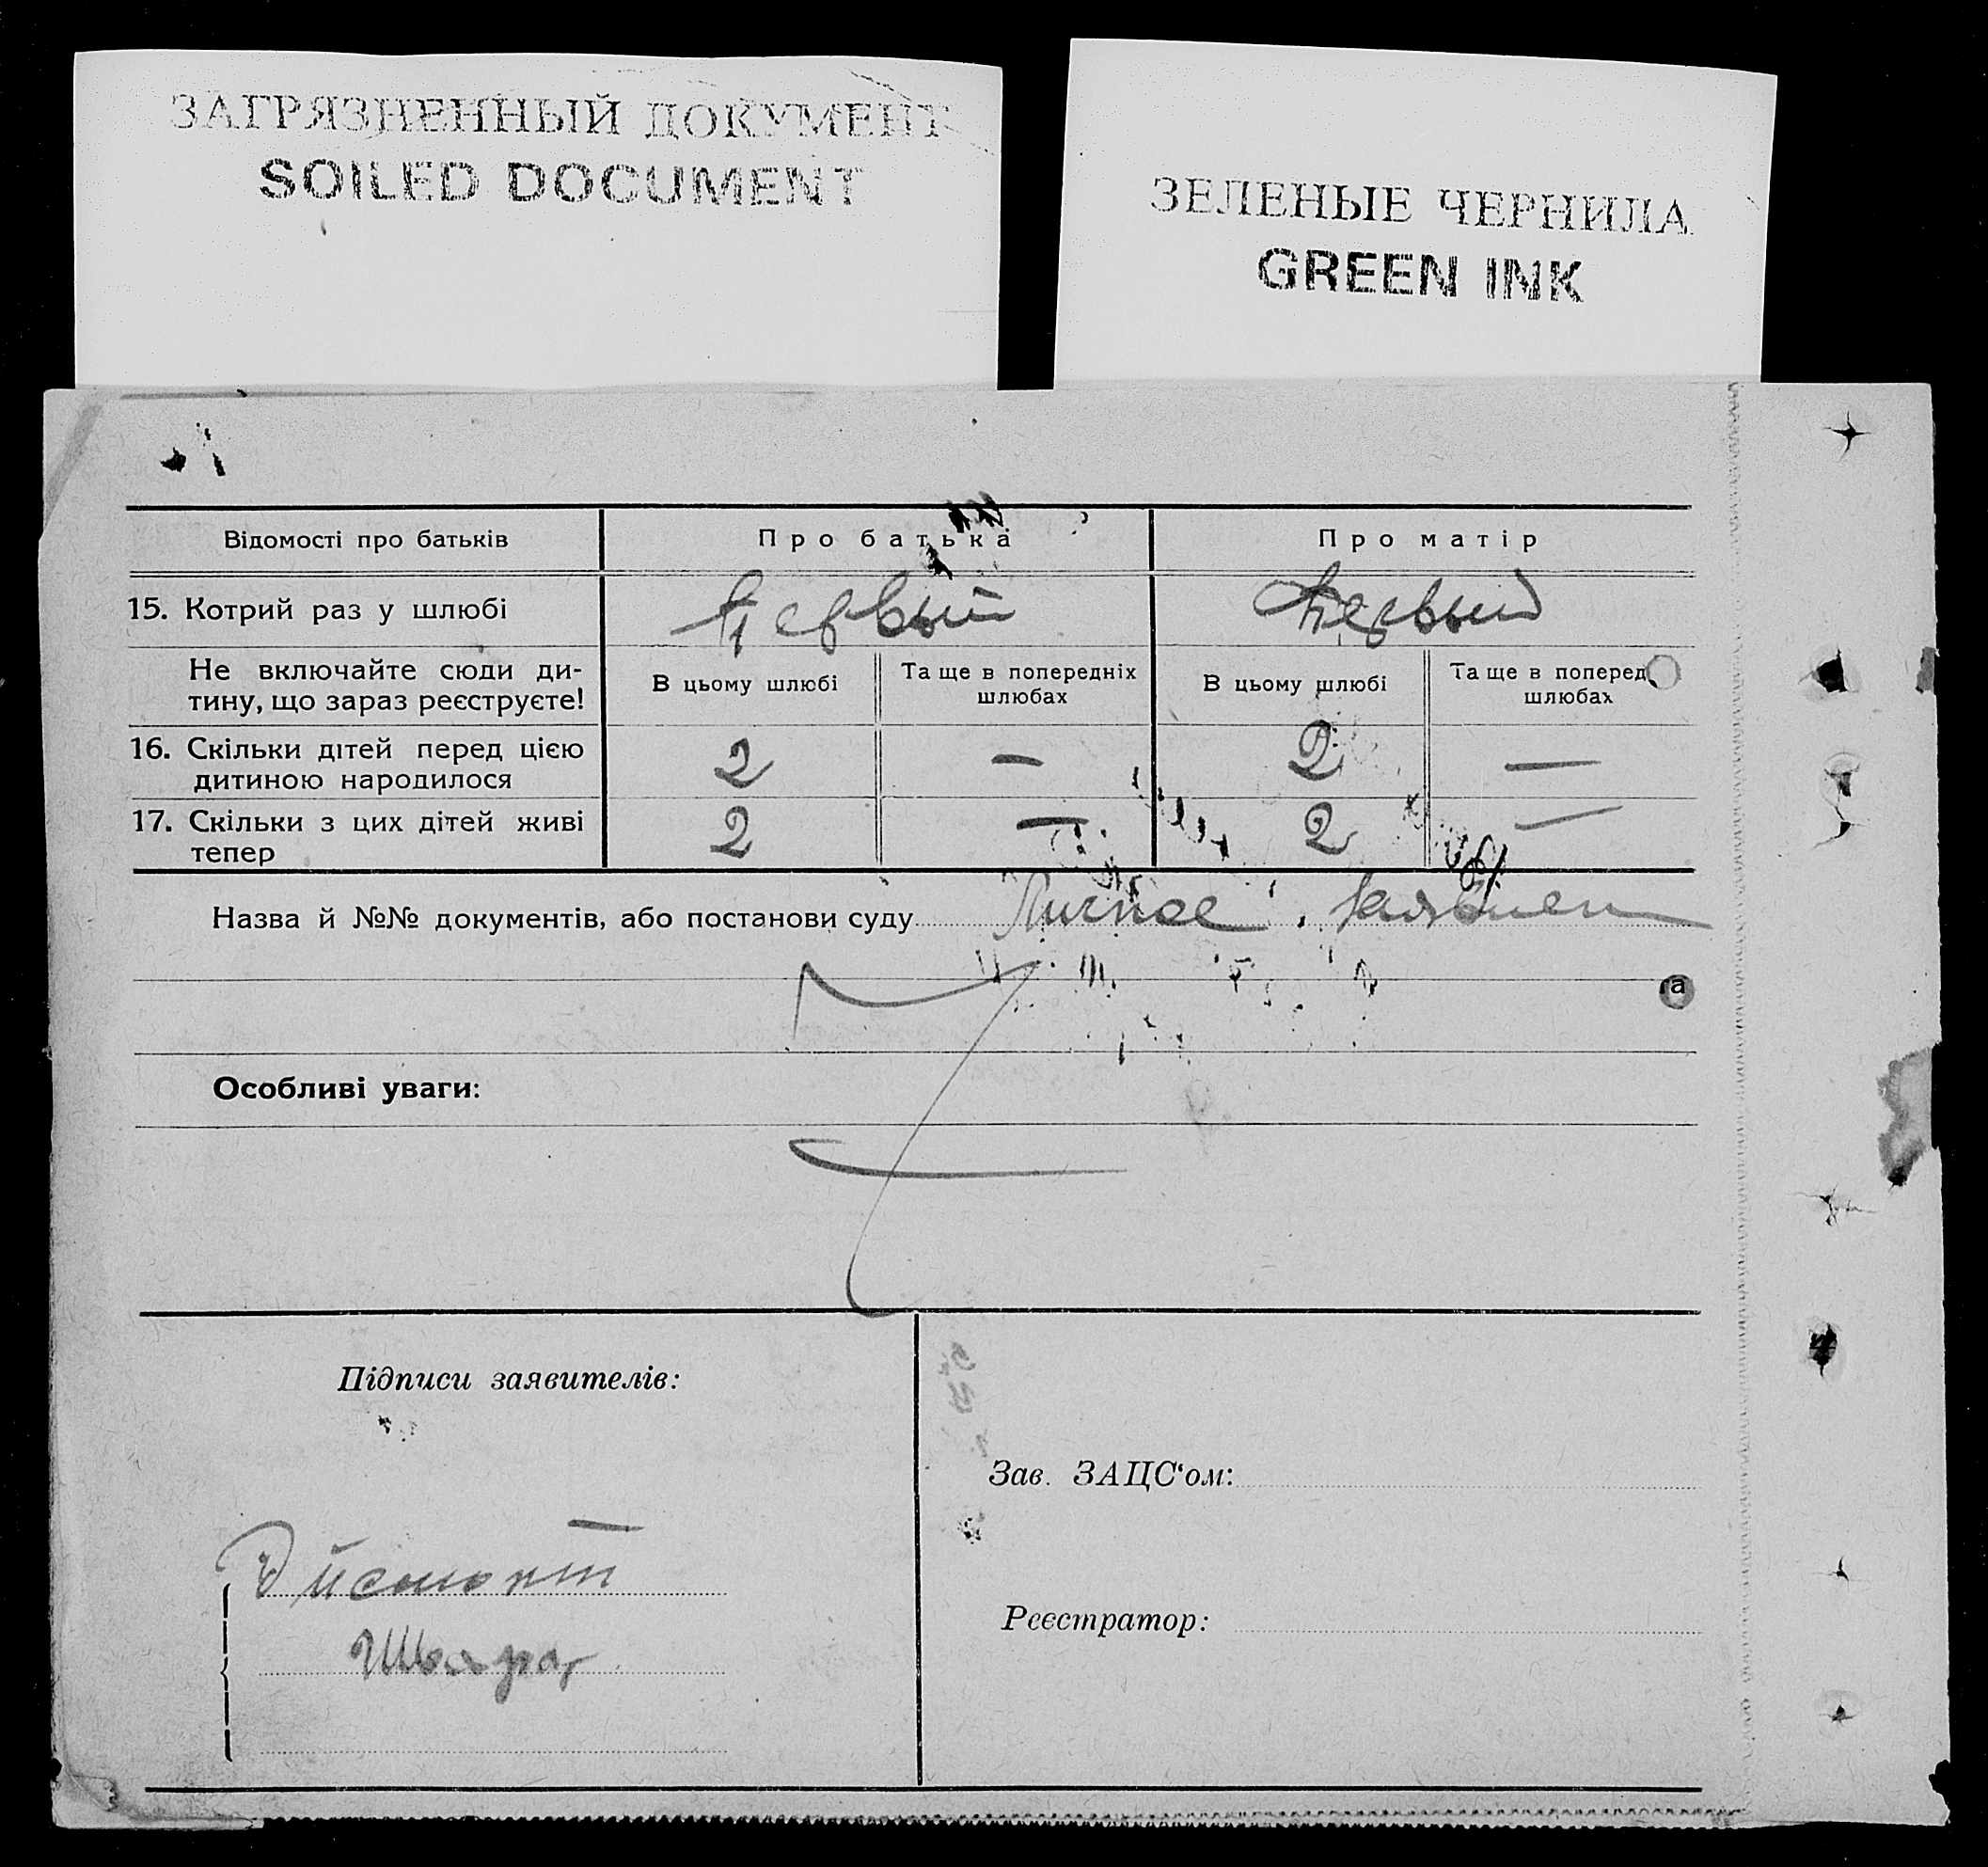 ЗАГРЯЗНЕННЫЙ ДОКУМЕНТ
SOILED DOCUMENT
ЗЕЛЕНЫЕ ЧЕРНИЛА
GREEN INK
Відомості про батьків Про батька Про матір
15. Котрий раз у шлюбі Первый Первый
Не включайте сюди ди-
тину, що зараз реєструєте!
В цьому шлюбі Та ще в попередніх
шлюбах
В цьому шлюбі Та ще в поперед
шлюбах
16. Скільки дітей перед цією
дитиною народилося
2 — 2 —
17. Скільки з цих дітей живі
тепер
2 — 2 —
Назва й №№ документів, або постанови суду Личное
та
Особливі уваги:
Підписи заявителів:
Зав. ЗАЦС‘ом:
Реєстратор: